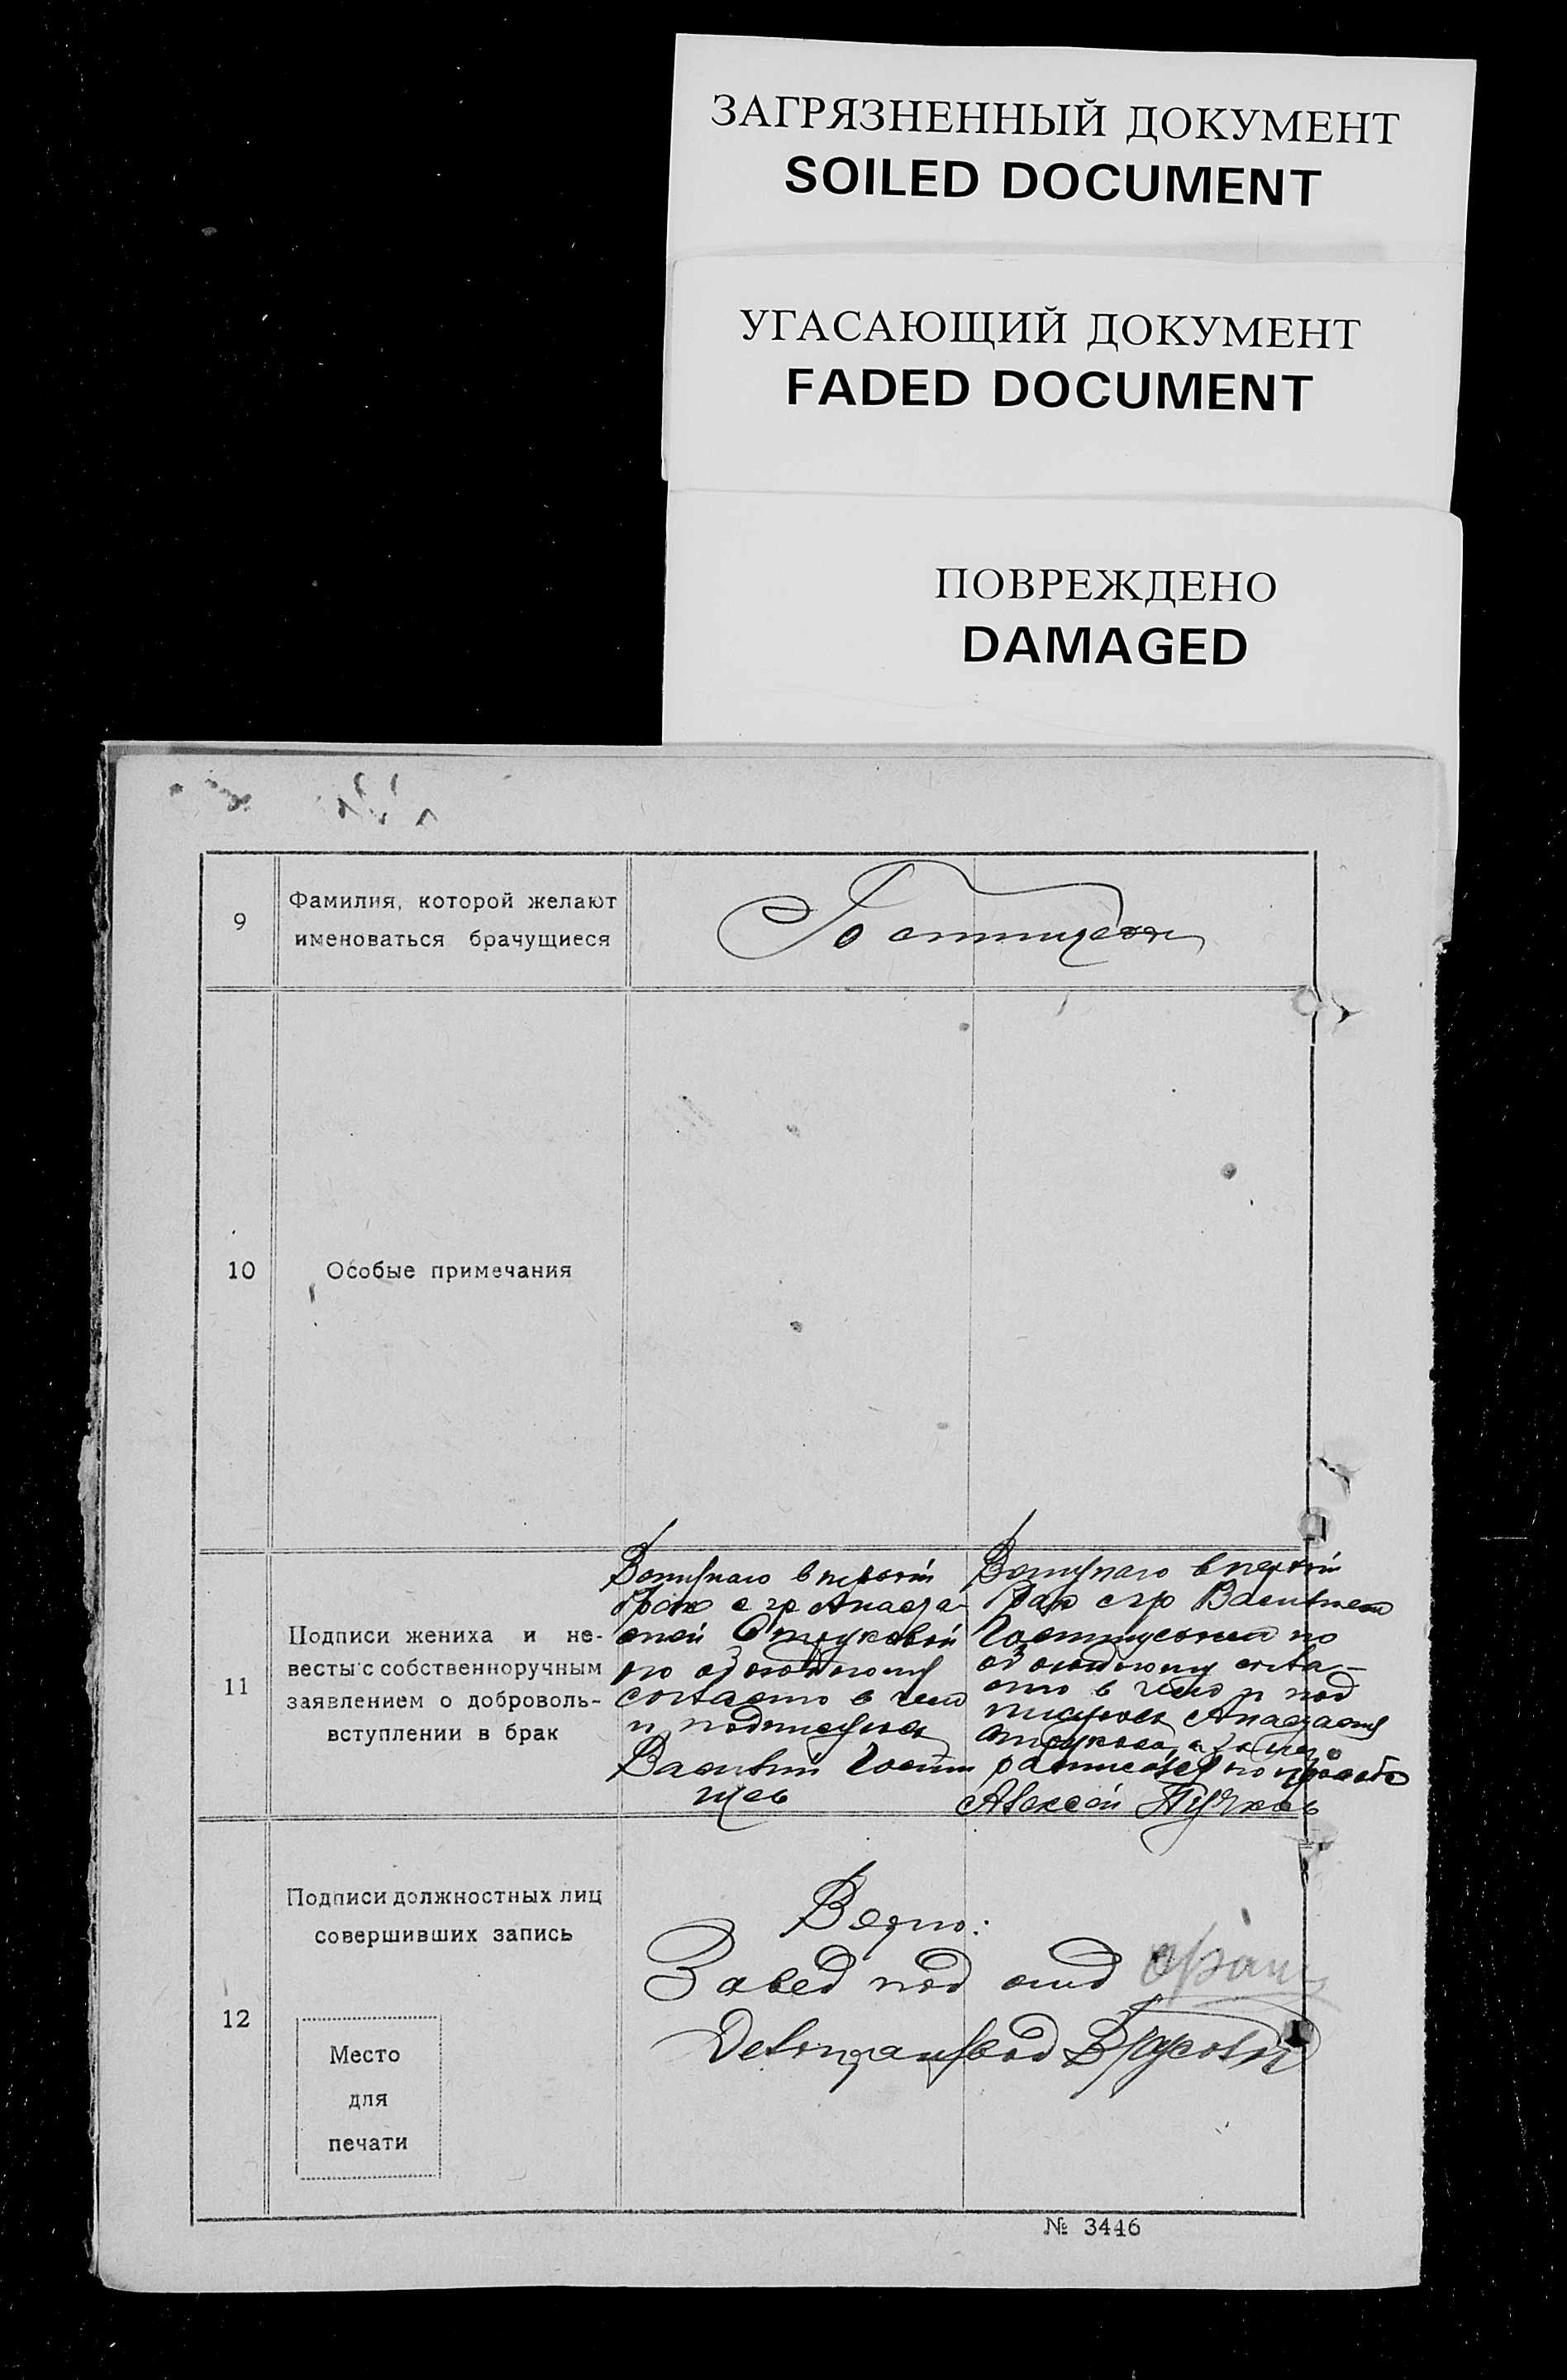 ЗАГРЯЗНЕННЫЙ ДОКУМЕНТ
SOILED DOCUMENT
УГАСАЮЩИЙ ДОКУМЕНТ
FADED DOCUMENT
ПОВРЕЖДЕНО
DAMAGED
9
Фамилия, которой желают
именоваться брачущиеся
10
Особые примечания
11
Подписи жениха и не-
весты с собственноручным
заявлением о доброволь-
вступлении в брак
Вступаю в первый
брак с гр Анаста-
сией
по обоюдному
согласию в чем
и подписуюсь
Василий Гости
щев
Вступаю в первый
брак с гр Василием
по
обоюдному согла-
сию в чем и под
писуюсь
по
Алексей Пучков
12
Подписи должностных лиц
совершивших запись
Место
для
печати
Верно:
Завед под отд
№ 3446